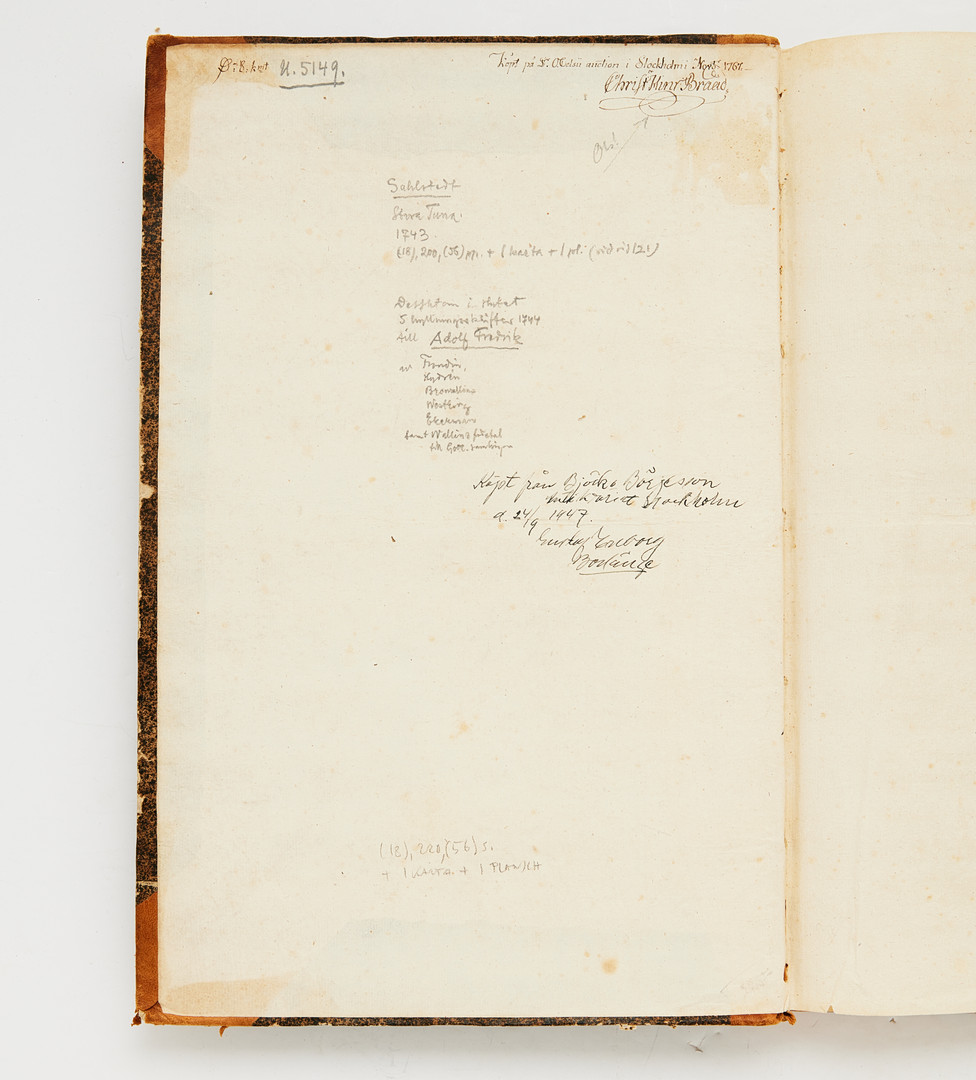 U. 5149.
Köpt på auction i Stockholm 1767.
Christ. Hinr. Braad.
obs!
Sahlstedt
Stora Tuna.
1743.
(18), 220, (56) pp. + 1 karta + 1 pl. (vid sid 121)
Dessutom i slutet
5 hyllningsskrifter 1744
till Adolf Fredrik
av Frondin,
Hydrén
Browallius
Ekerman
samt Wallins
till Gotl. samlingar
Köpt från Björck & Börjesson
antikvariat Stockholm
d. 24/9 1947.
Gustaf Eneborg
Borlänge
(18), 220, (56) s.
+ 1 KARTA + 1 PLANSCH